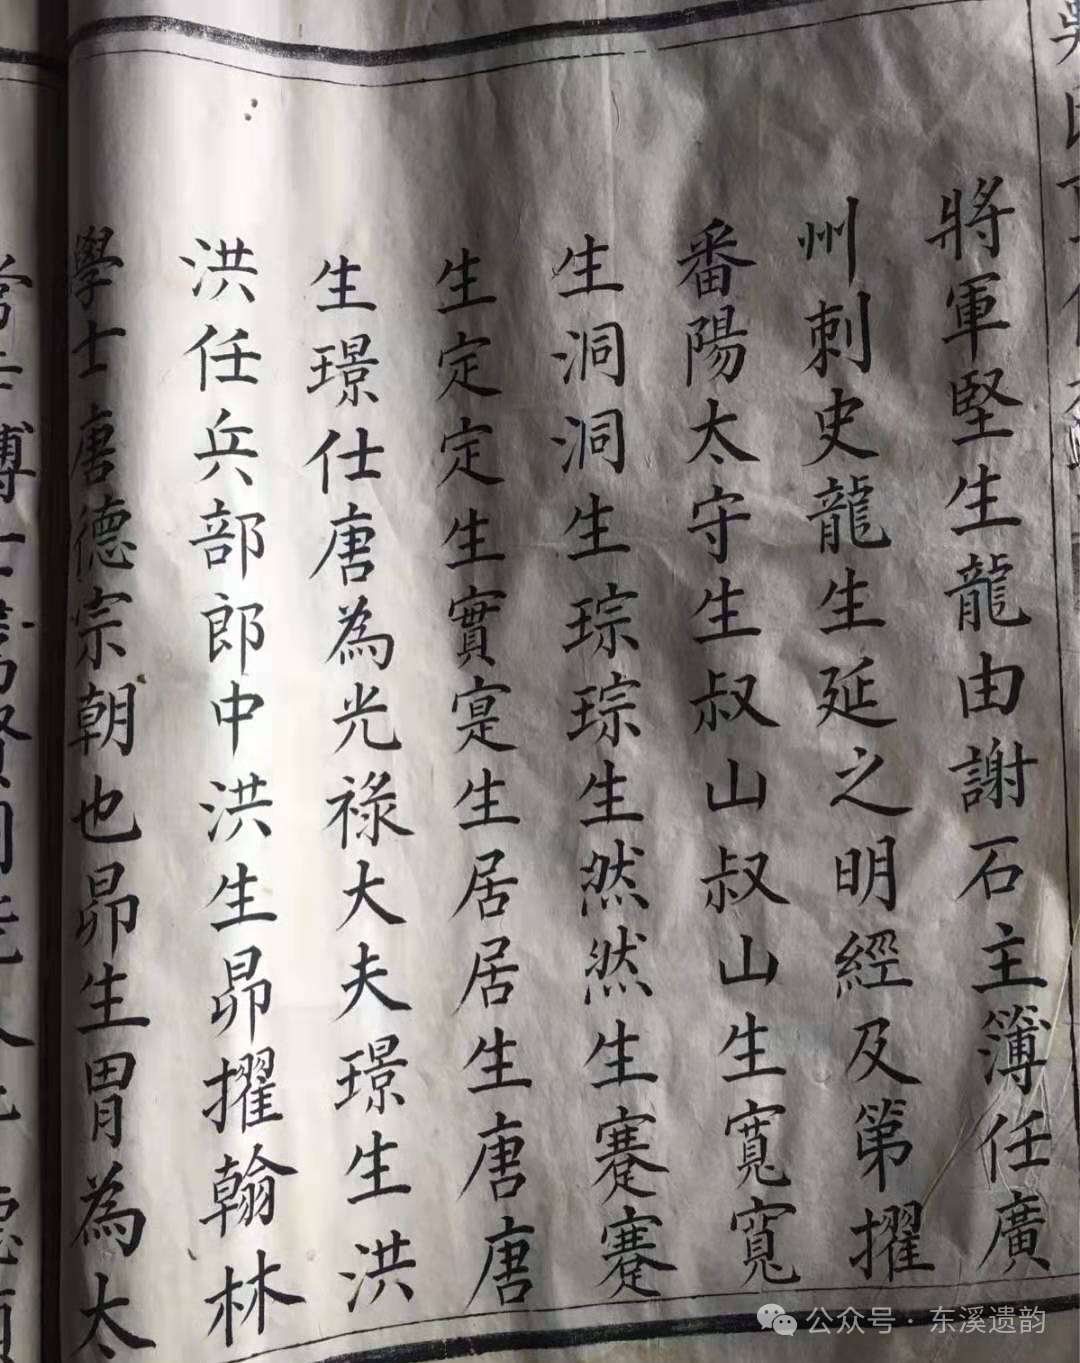 將軍堅生龍由謝石主簿任廣
州刺史龍生延之明經及第擢
番陽太守生叔山叔山生寬寬
生洞洞生琮琮生然然生蹇蹇
生定定生實寔生居居生唐唐
生璟仕唐為光祿大夫璟生洪
洪任兵部郎中洪生昴擢翰林
學士唐德宗朝也昴生胃為太
公众号·东溪遗韵